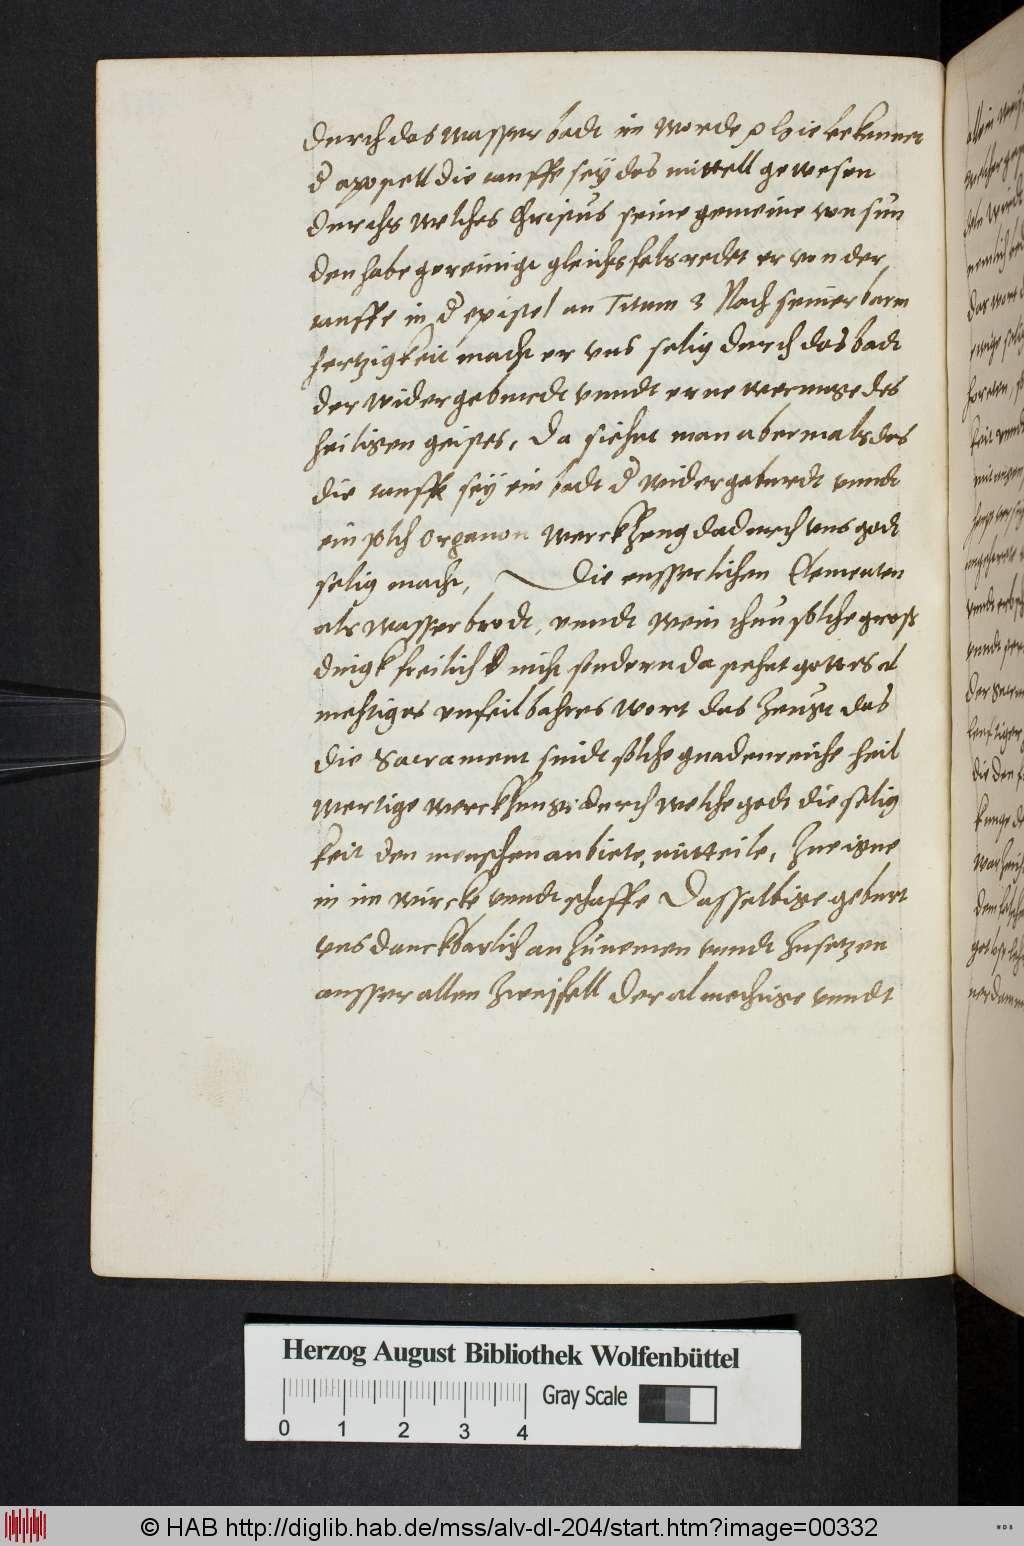 durch das wasser badt im worde hie bekennet
d apostell die tauffe sey das mittell gewesen
durchs welches Christus seine gemeine von sun
den habe gereinigt gleichsfals redet er von der
tauffe in d epistel an Titum 3 Nach seiner barm
hertzigkeit macht er vns selig durch das badt
der widergeburdt vnndt ernewerunge des
heiligen geistes, Da siehet man abermals das
die tauffe seÿ ein badt d widergeburdt vnndt
ein solch Organon werckzeug dadurch vns godt
selig macht, Die eusserlichen Elementen
als wasser brodt, vnndt wein thun solche gross
dingk freilich nicht sondern da stehet gottes al
mechtiges vnfeilbahres wort das zeugt das
die Sacrament sindt solche gnadenreiche heil
wertige werckzeuge durch welche godt die selig
keit den menschen anbiete, mitteile, Zueigne
in im wircke vnndt schaffe Dasselbige geburt
vns danckbarlich an zunemen vnndt zusetzen
ausser allen zweiffell Der almechtige vnndt
Herzog August Bibliothek Wolfenbüttel
Gray Scale
0 1 2 3 4
© HAB http://diglib.hab.de/mss/alv-dl-204/start.htm?image=00332